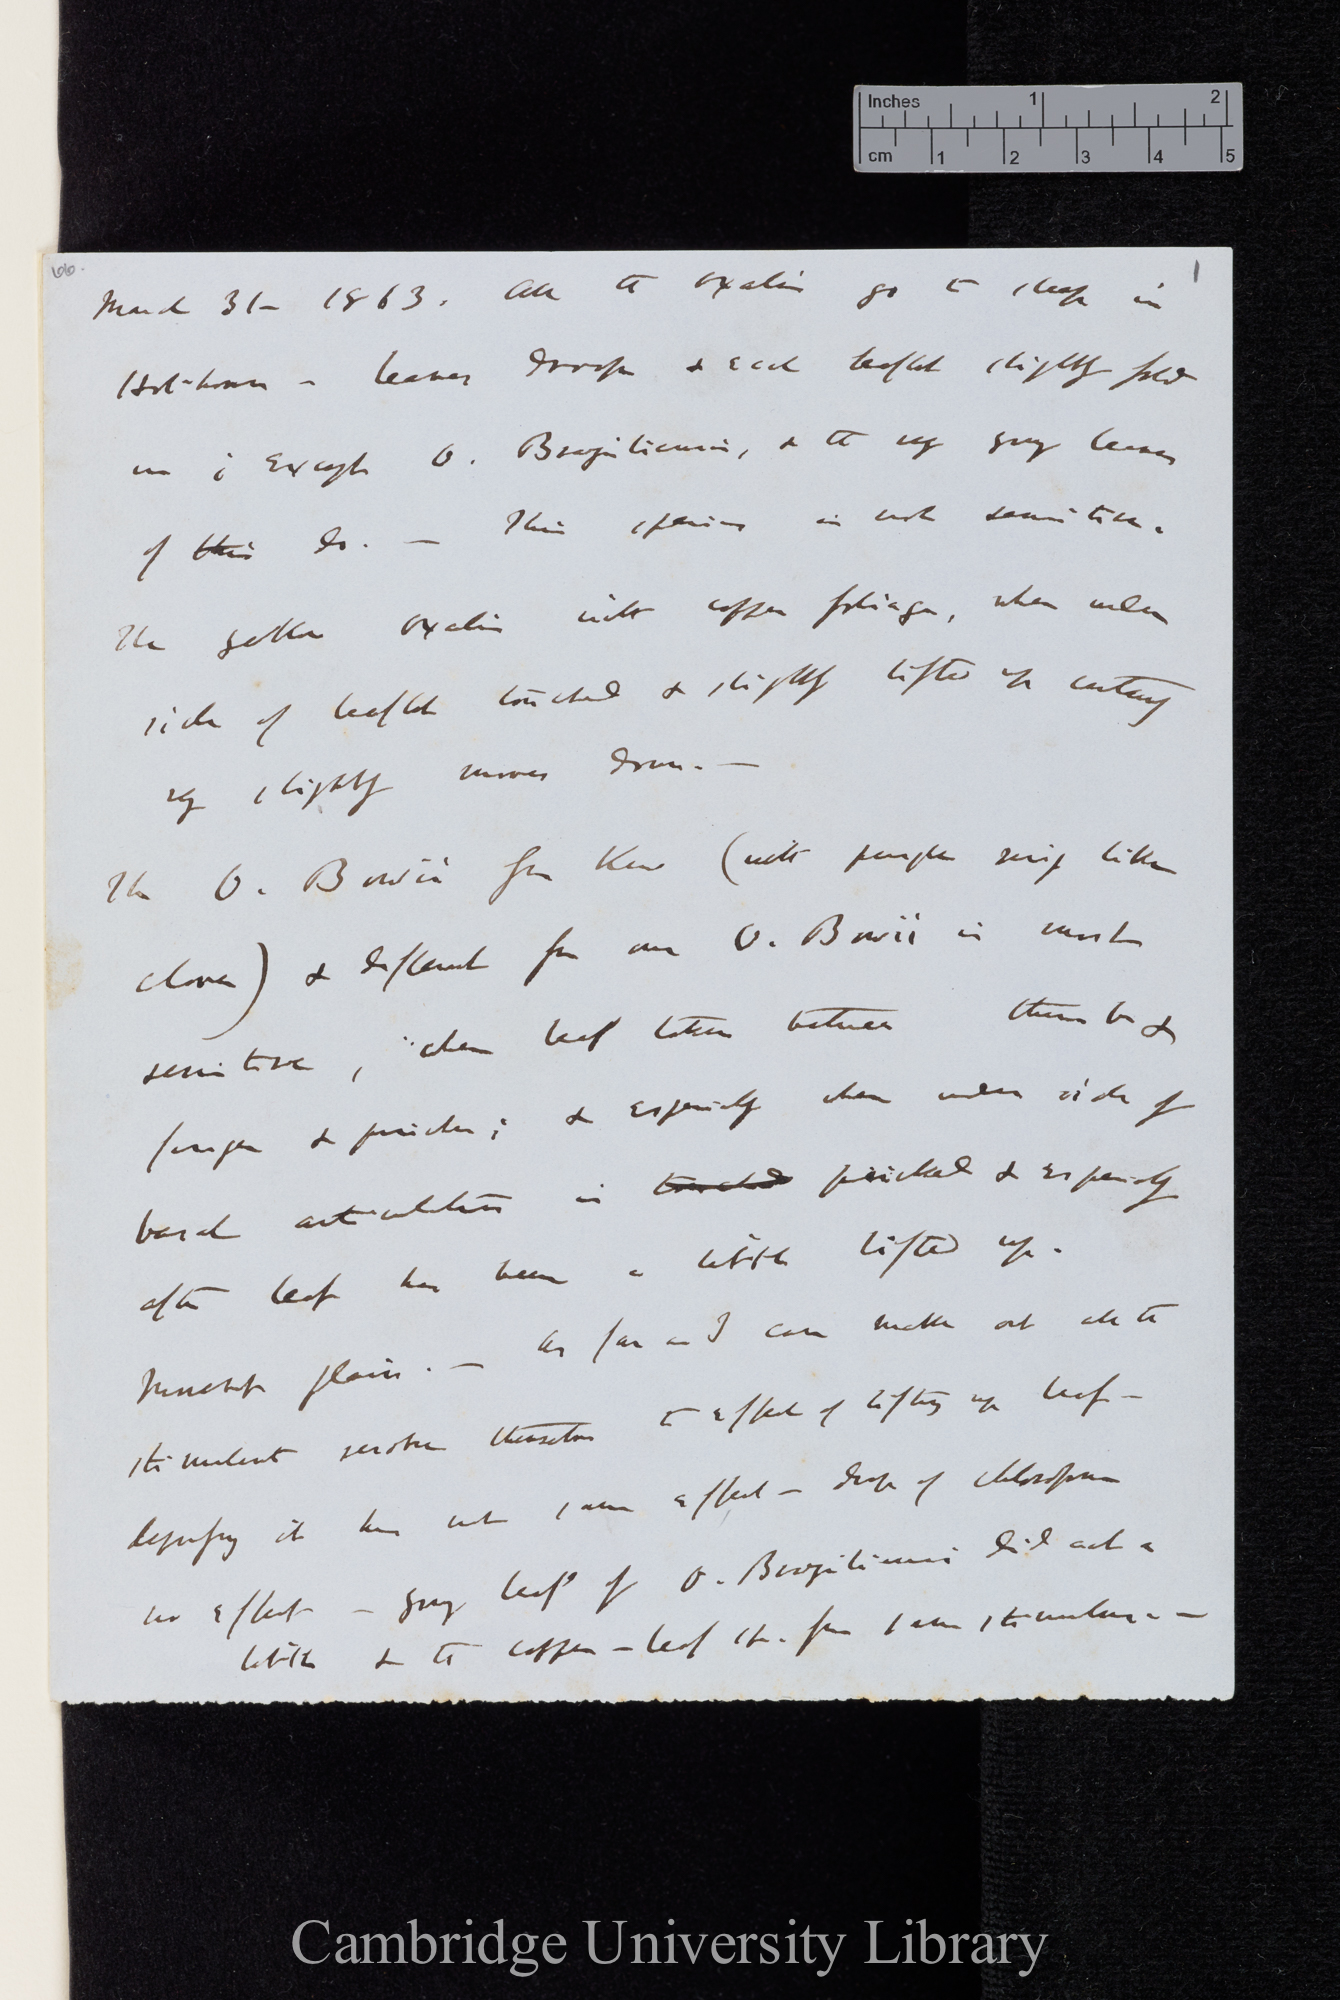 Inches 1 2
cm 1 2 3 4 5
66.
1
March 31 – 1863. All the Oxalis go to sleep in
Hot-house – leaves droop & each leaflet slightly fold
in ; except O. Braziliensis, & the very young leaves
of this do. — This species is not sensitive.
The yellow Oxalis with copper foliage, when under
side of leaflet touched & slightly lifted up certainly
very slightly moves down. —
The O. Bowii from Kew (with purple ring like
clover) & different from our O. Bowii is most
sensitive, when leaf taken between thumb &
finger & pricked; & especially when under side of
basal articulation is touched pricked & especially
after leaf has been a little lifted up.
Movement plain. — As far as I can make out all the
stimulent resolve themselves to effect of lifting up leaf –
depressing it has not same effect – drop of chloroform
no effect – young leaf of O. Braziliensis did act a
little & the copper-leaf from same stimulus –
Cambridge University Library